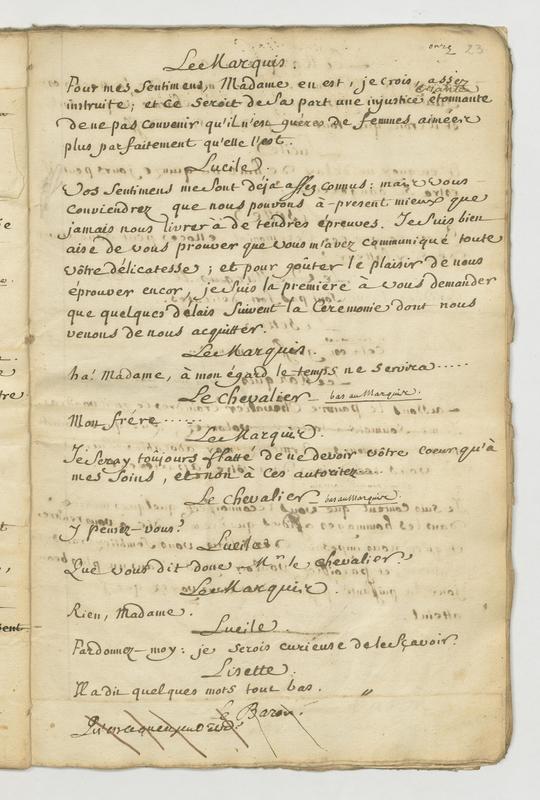 23
Le Marquis.
Pour mes Sentimens, Madame en est, je crois, assez
instruite; et Ce Seroit de Sa part une injustice étonnante
de ne pas Convenir qu'il n'est guéres de femmes aimées
plus parfaitement qu'elle l'est.
Lucile
Vos Sentimens me Sont déja assez connus: mais Vous
Conviendrez que nous pouvons à-present mieux que
jamais nous livrer à de tendres épreuves. Je Suis bien
aise de vous prouver que vous m'avez communiqué toute
vôtre délicatesse; et pour goûter le plaisir de nous
éprouver encor, je Suis la premiere à vous demander
que quelques délais Suivent la Cerémonie dont nous
venons de nous acquitter.
Le Marquis
ha! Madame, à mon égard le temps ne Servira.....
Le Chevalier bas au Marquis.
Mon frére......
Le Marquis.
Je Seray toujours flatté de ne devoir vôtre Coeur qu'à
mes Soins, et non à Ces autoritez
Le Chevalier bas au Marquis.
Y pensez-vous?
Lucile
Que vous dit donc Mr. le chevalier?
Le Marquis.
Rien, Madame.
Lucile.
Pardonnez-moy: je Serois curieuse de le Sçavoir.
Lisette.
Il a dit quelques mots tout bas.
Le Baron.